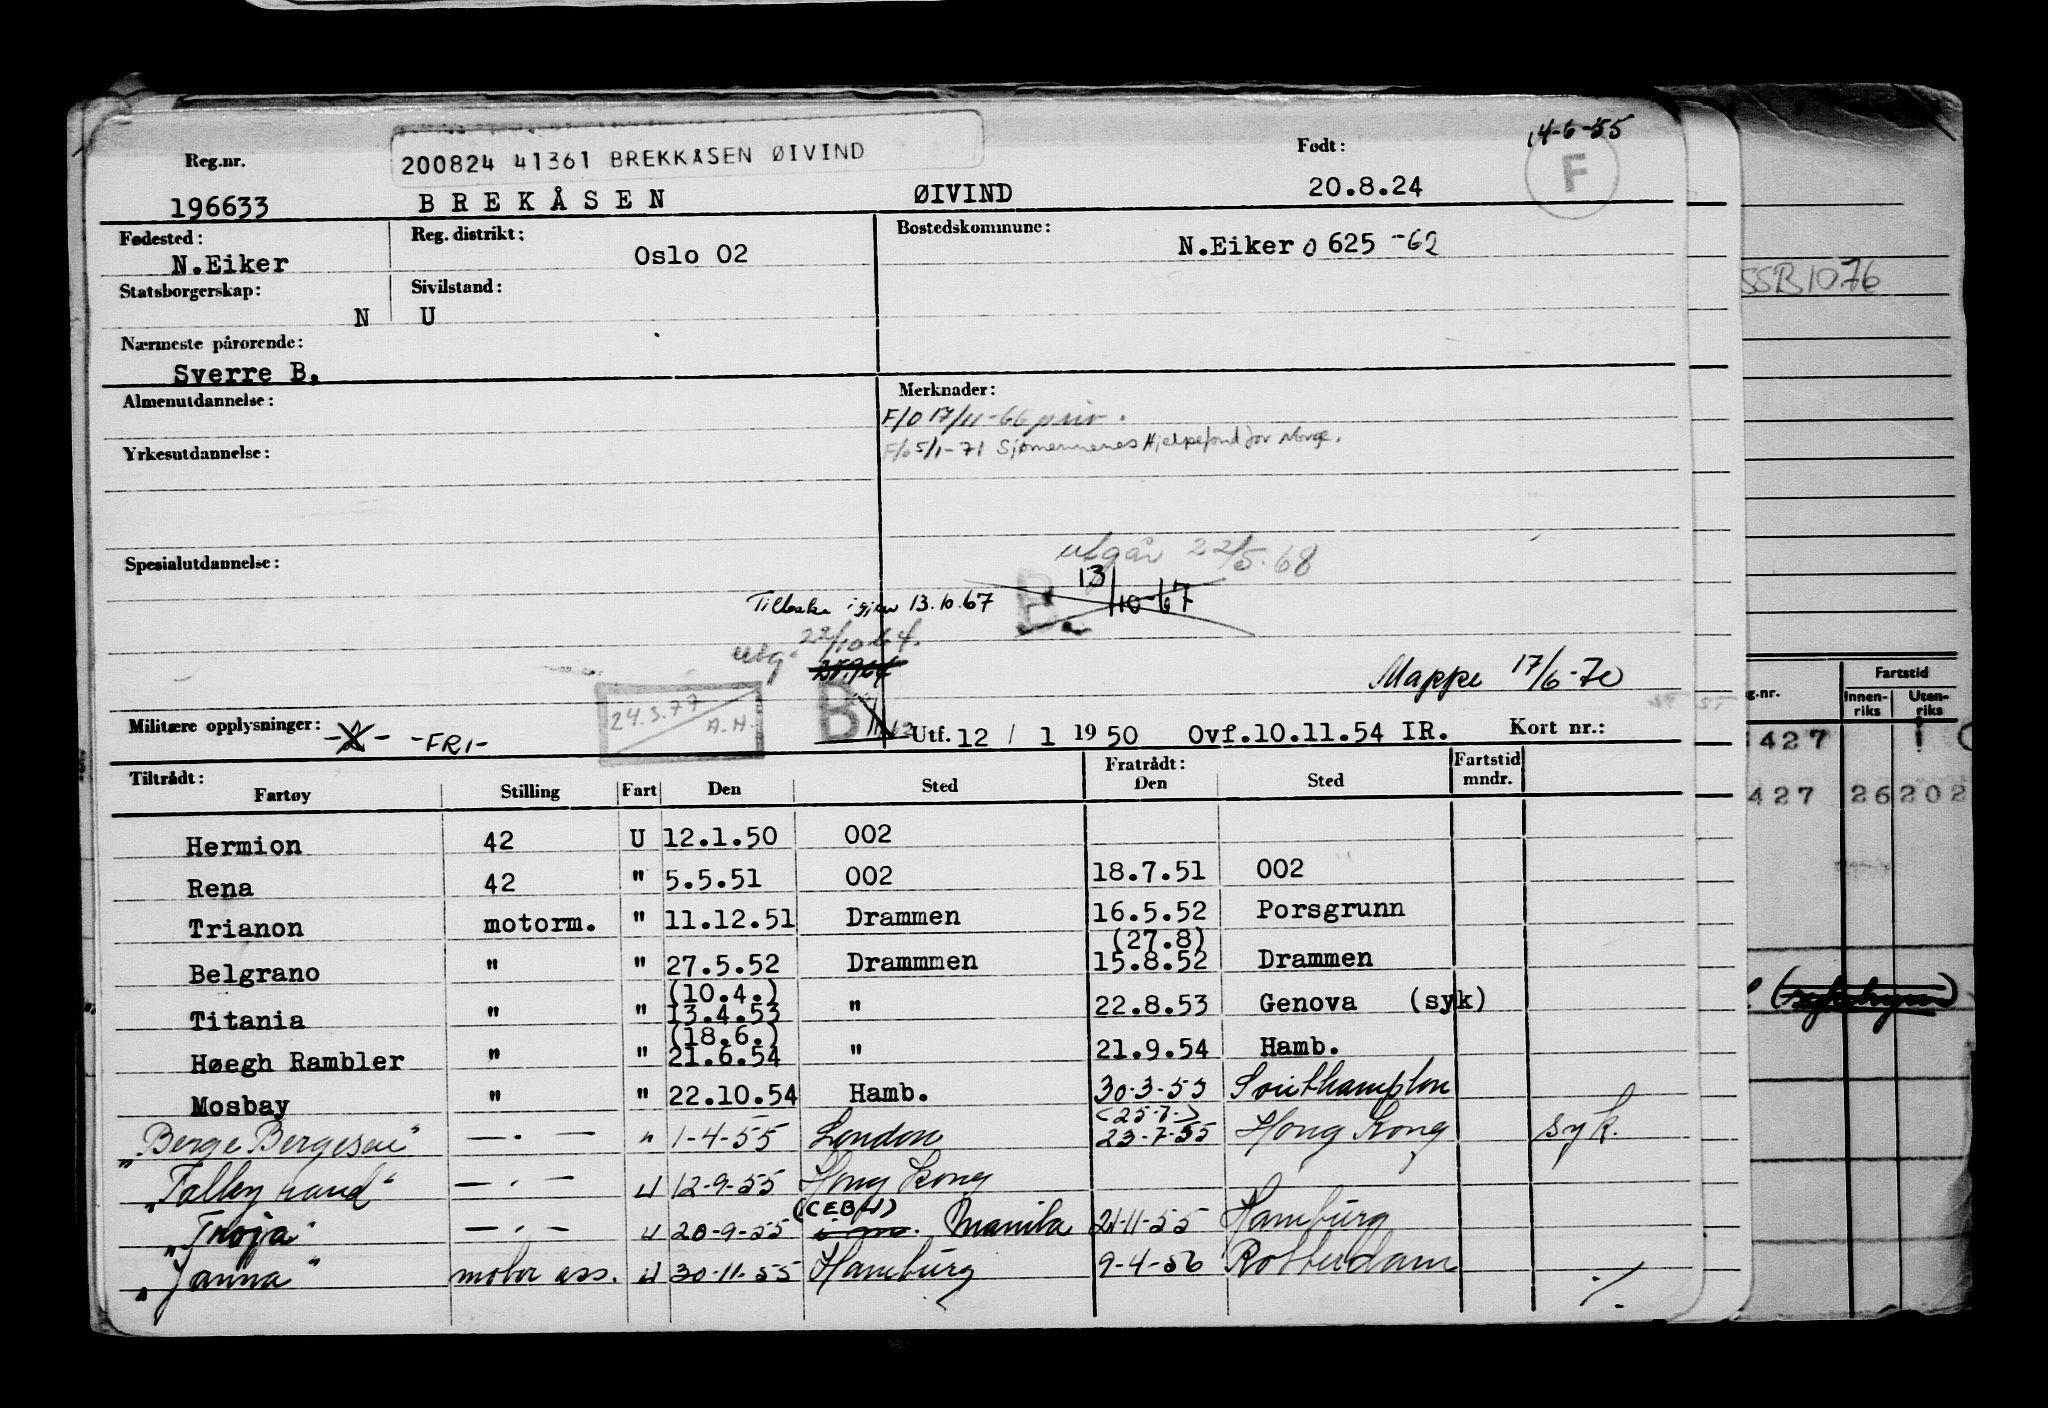 14-6-55
Reg.nr. 200824 41361 BREKKÅSEN ØIVIND Født: F
196633 BREKÅSEN ØIVIND 20.8.24
Fødested: Reg. distrikt: Bostedskommune:
N.Eiker Oslo 02 N.Eiker 0 625 -62
SSB 10.76
Statsborgerskap: Sivilstand:
N U
Nærmeste pårørende:
Sverre B.
Almenutdannelse: Merknader:
F/O 17/11-66 priv.
Yrkesutdannelse: F/o 5/1-71 Sjømennenes Hjelpefond for Norge.
Spesialutdannelse:
utgår 22/5.68
B 13/10-67
Tilbake igjen 13.10.67
utg. 22/10.64.
Mappe 17/6-70
24.3.77 A.H. B
Militære opplysninger: -FRI- Utf. 12 / 1 1950 Ovf.10.11.54 IR. Kort nr.:
g.nr. Fartstid
Innen-riks Uten-riks
427
427 26 202
Tiltrådt: Fratrådt: Fartstid mndr.
Fartøy Stilling Fart Den Sted Den Sted
Hermion 42 U 12.1.50 002
Rena 42 " 5.5.51 002 18.7.51 002
Trianon motorm. " 11.12.51 Drammen 16.5.52 Porsgrunn
(27.8)
Belgrano " " 27.5.52 Drammmen 15.8.52 Drammen
(10.4.)
Titania " " 13.4.53 " 22.8.53 Genova (syk)
(18.6.)
Høegh Rambler " " 21.6.54 " 21.9.54 Hamb.
Mosbay " " 22.10.54 Hamb. 30-3-55 Southampton
<25-7->
"Berge Bergesen" — . — " 1-4-55 London 23-7-55 Hong Kong syk.
"Talleyrand" — . — U 12-9-55 Hong Kong
(CEBU)
"Troja" — . — U 20-9-55 Manila 21-11-55 Hamburg
"Janna" motor ass. U 30-11-55 Hamburg 9-4-56 Rotterdam
./.